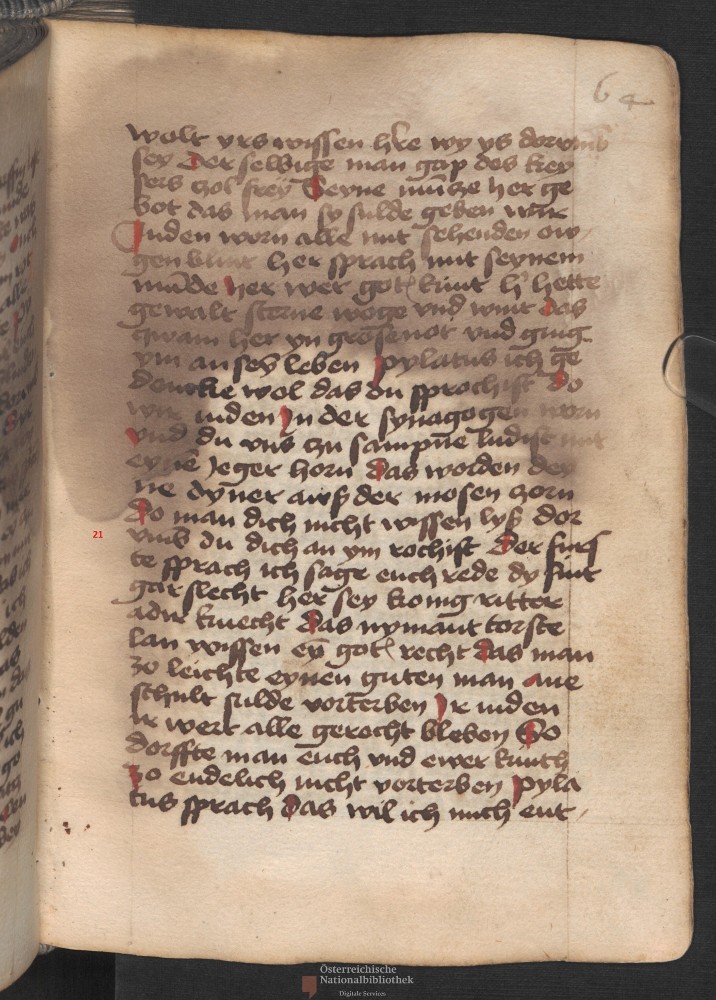 64
wolt yrs wissen h̄re wy ys dorvmb
sey Der selbige man gap des key
sers zol frey Seyne mūcze her ge
bot das man sy sulde geben wir
Juden worn alle mit sehenden ow⸗
gen blint her sprach mit seynem
mūde Her wer got' kint h' hette
gewalt sterne woge vnd wint Das
qwam her yn grosenot vnd ging
ym an sey leben Pylatus ich gē
dencke wol das du sprochist Do
wir iuden Jn der synagogen worn
Vnd du vns zu sampne ludist mit
eynē Jeger horn Das worden dey
ne dyner aws der mosen zorn
Do man dich nicht wissen lys dor
vmb du dich an ym rochist Der furs
te sprach ich sage euch rede dy sint
gar slecht her sey konig ritter
adir knecht Das nymant torste
lan wissen eȳ got' recht Das man
zo leichte eynen guten man ane
schult sulde vorterben Jr iuden
ir wert alle gerocht bleben So
dorffte man euch vnd ewer kinth
Zo endelich nicht vorterben Pyla
tus sprach Das wil ich mich ent⸗
21
Österreichische
Nationalbibliothek
Digitale Services